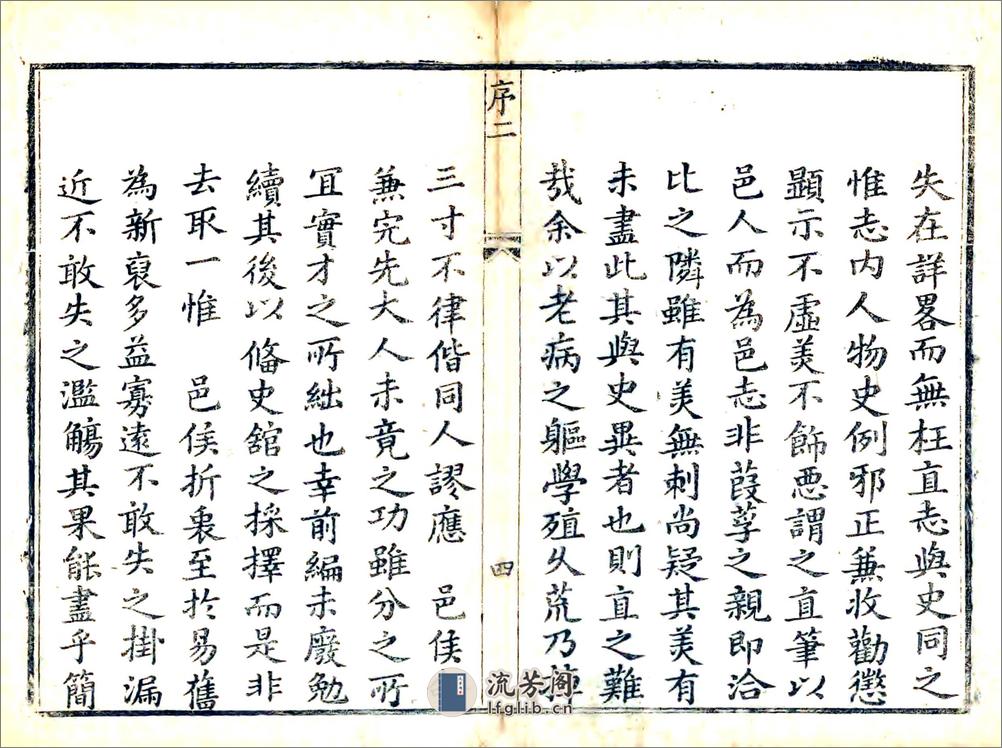 失在詳畧而無枉直志與史同之
惟志內人物史例邪正兼收勸懲
顯示不虛美不飾惡謂之直筆以
邑人而為邑志非葭莩之親即洽
比之隣雖有美無刺尚疑其美有
未盡此其與史異者也則直之難
哉余以老病之軀學殖久荒乃掉
序二
四
三寸不律偕同人謬應 邑侯
兼完先大人未竟之功雖分之所
宜實才之所絀也幸前編未廢勉
續其後以俻史舘之採擇而是非
去取一惟 邑侯折衷至於易舊
為新裒多益寡遠不敢失之掛漏
近不敢失之濫觴其果能盡乎簡
流芳阁
lfglib.cn